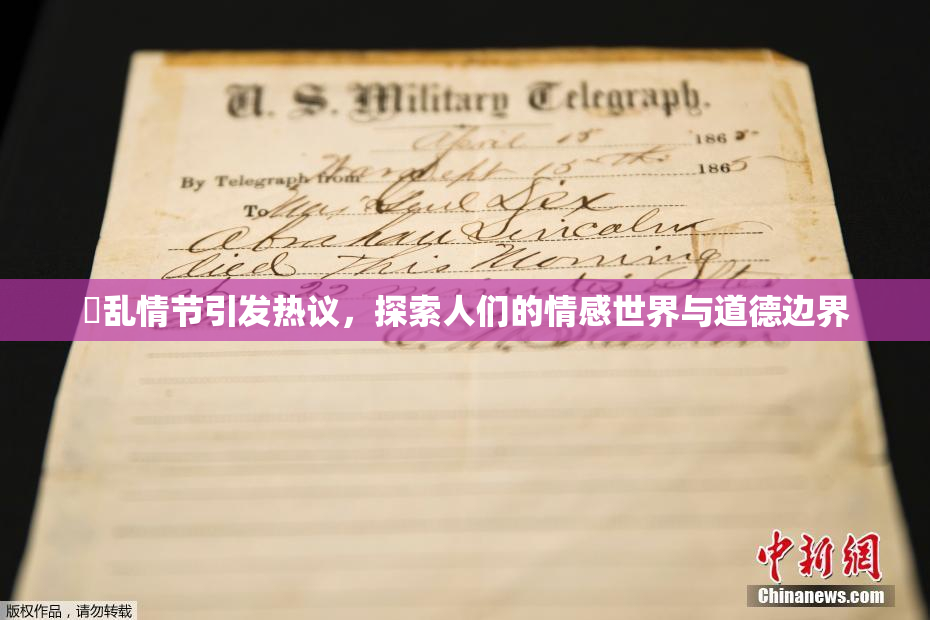 U. S. Military Telegraph.
April 15 1865
By Telegraph from War Dept 15th 1865
To Maj Genl Dix
Abraham Lincoln
died This Morning
22 minutes after
乱情节引发热议，探索人们的情感世界与道德边界
E. M. Stanton
中新网
Chinanews.com
版权作品，请勿转载